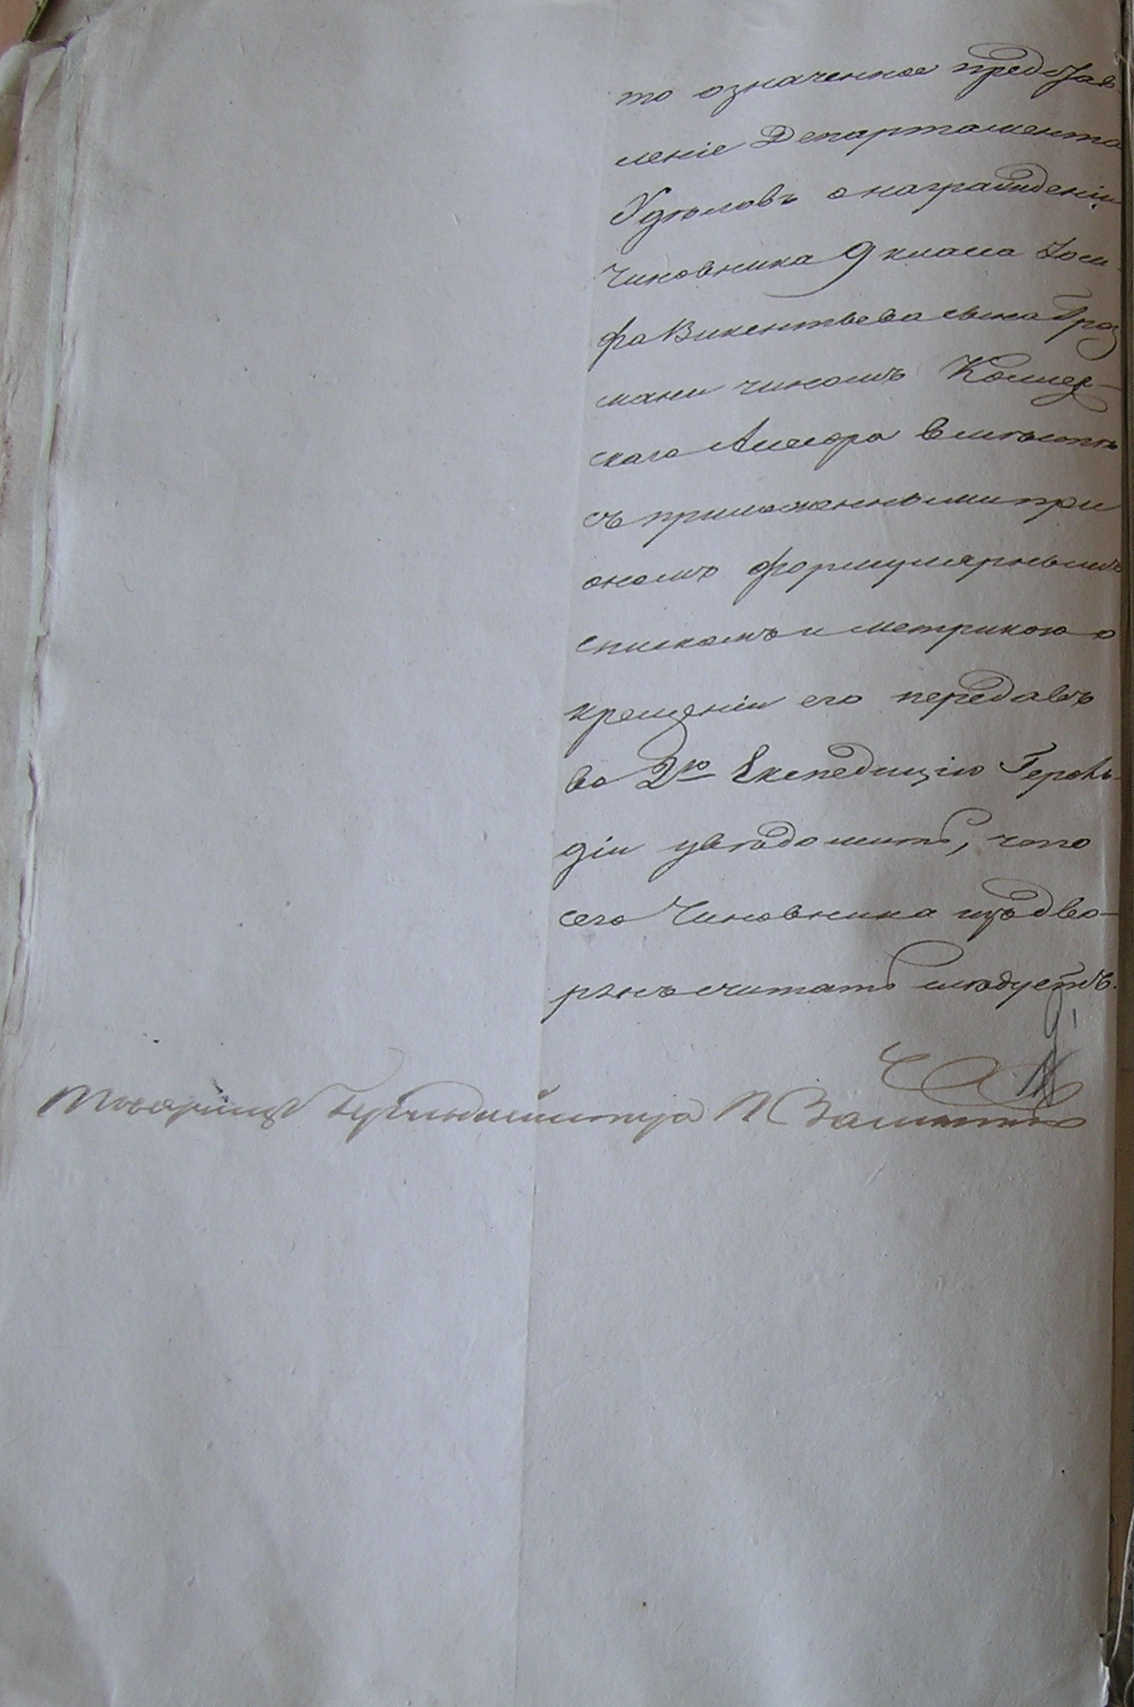 то означенное представ-
леніе Департамента
Удѣловъ о награжденіи
Чиновника 9 класа Іоси-
фа Викентьева сына Гроз
мани чиномъ Коллеж-
скаго Ассесора вмѣстѣ
съ приложенными при
ономъ формулярнымъ
спискомъ и метрикою о
крещеніи его передавъ
во 2ю Экспедицію Героль-
діи увѣдомить, что
сего Чиновника изъ дво-
рянъ считать слѣдуетъ.
Товарищъ Герольдмейстера